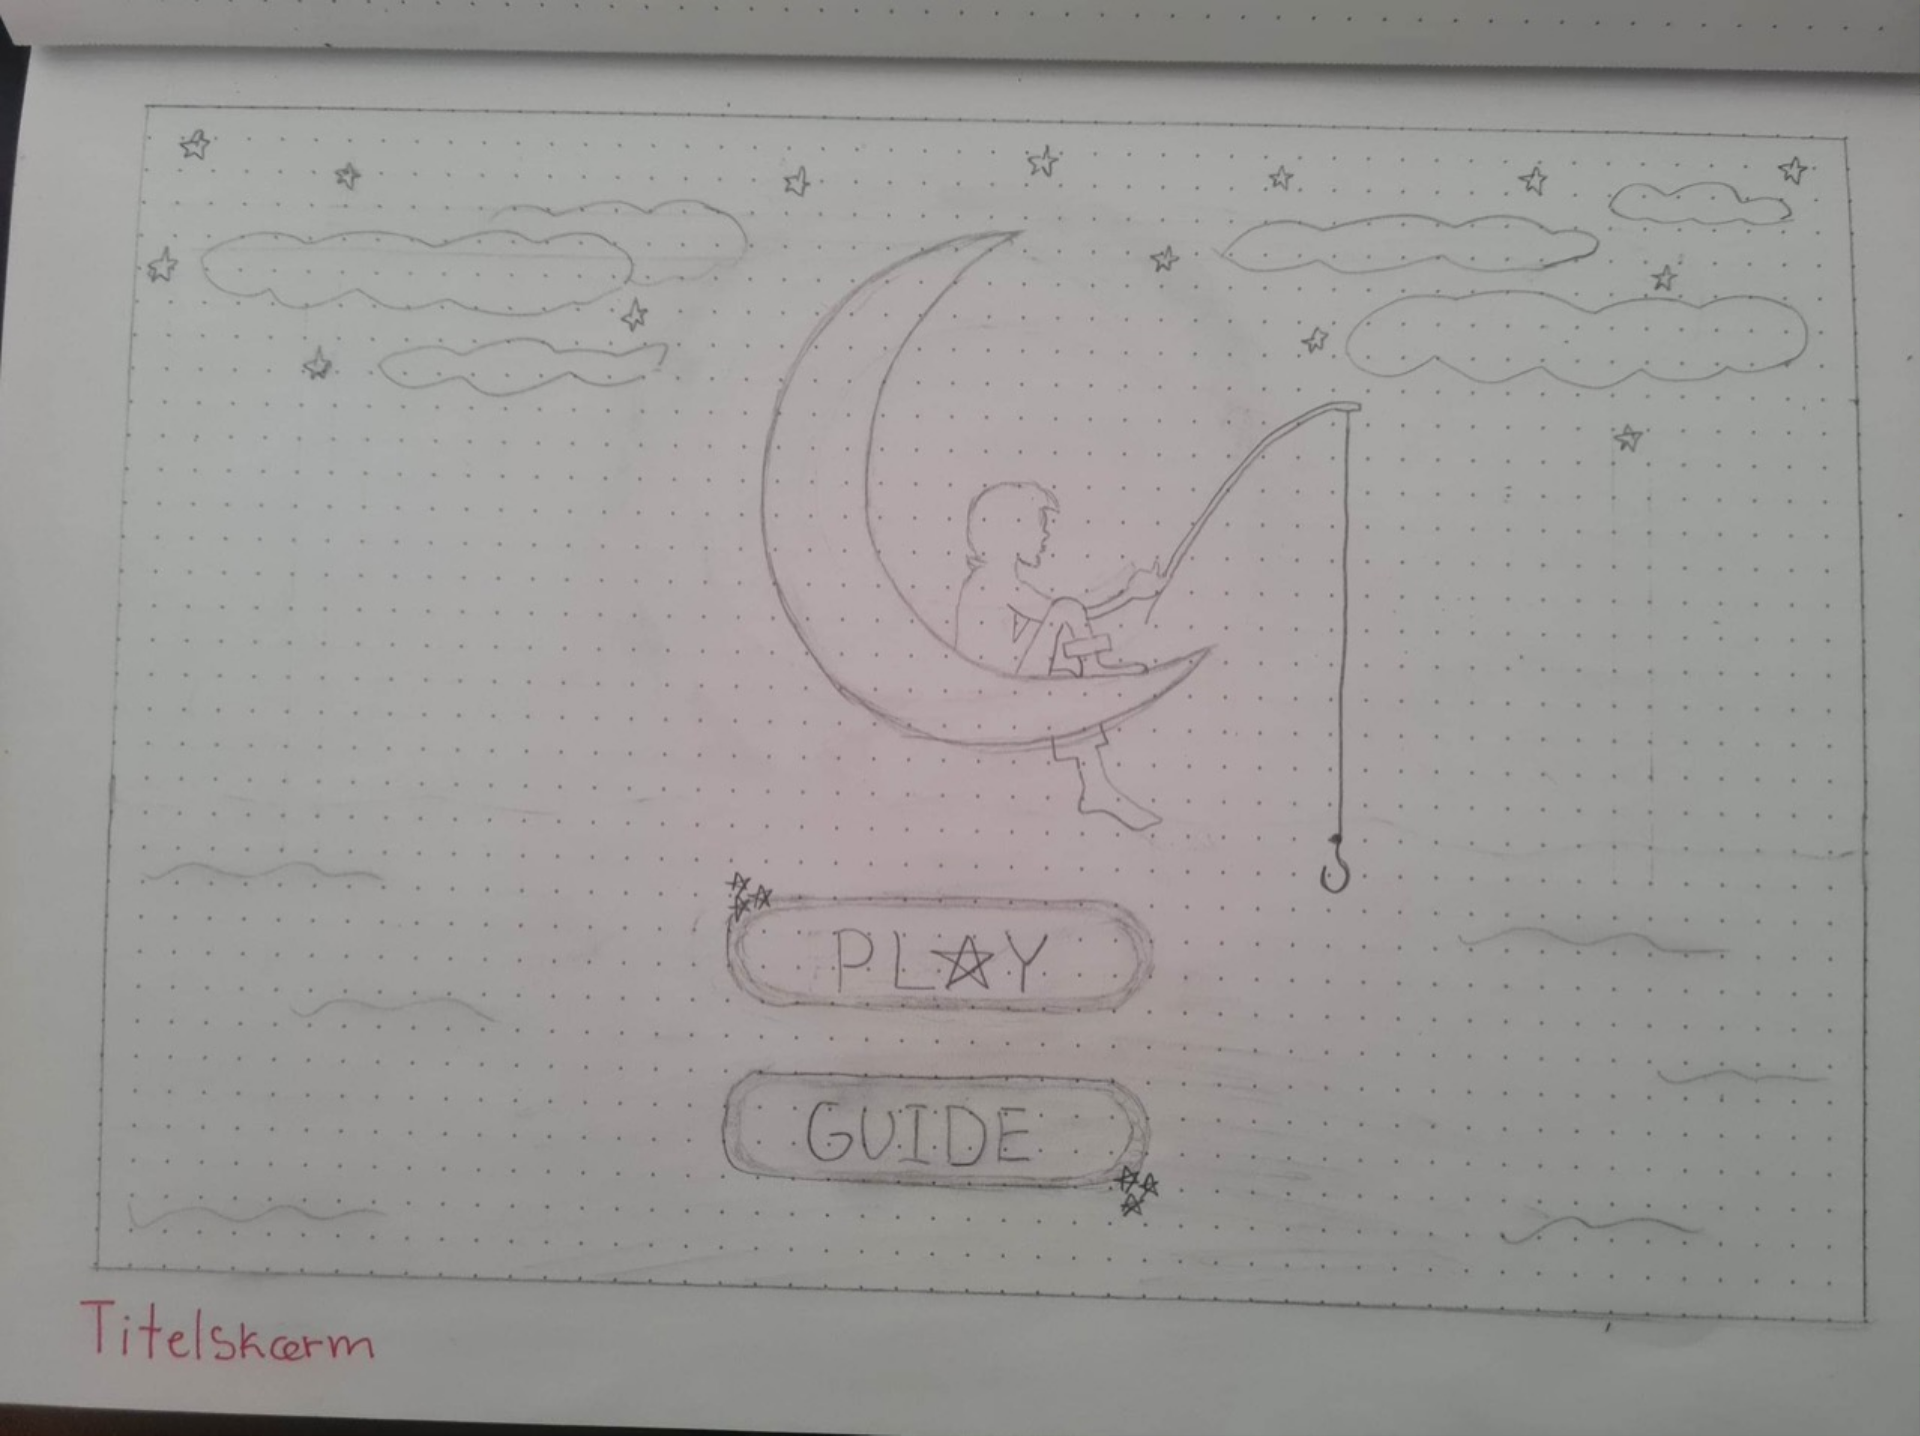 PLAY
GUIDE
Titelskærm